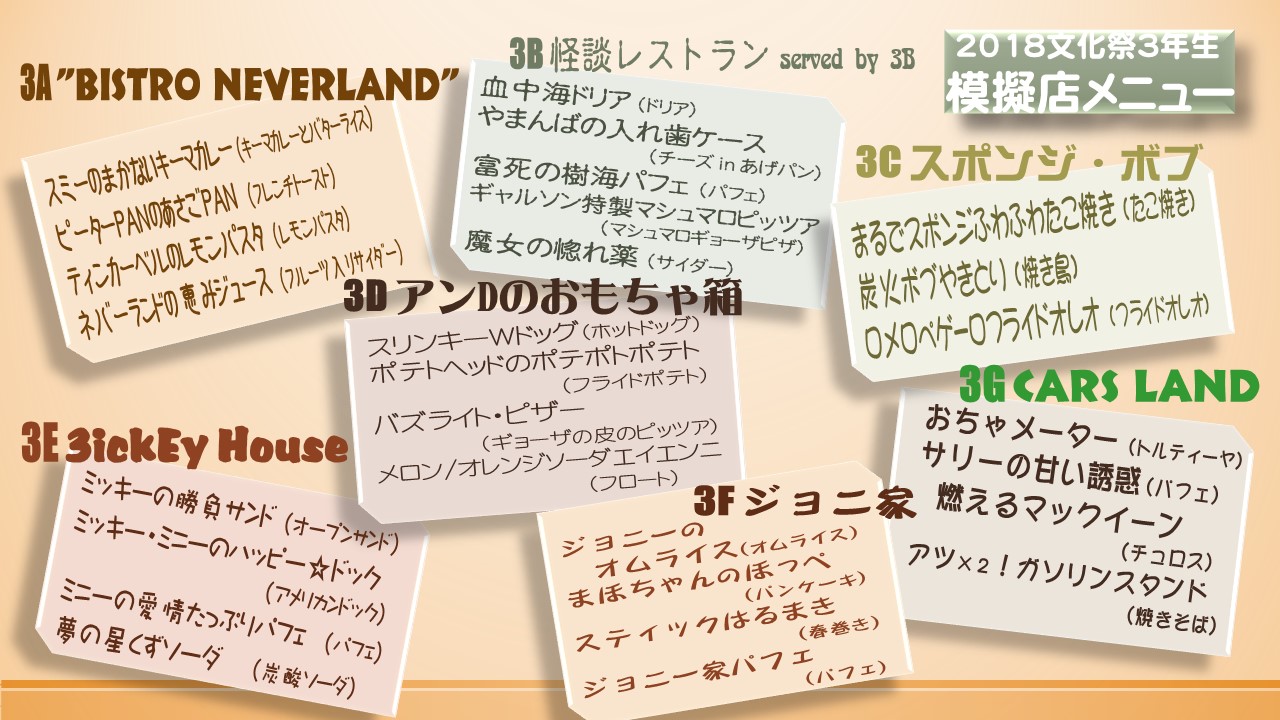 2018文化祭3年生
模擬店メニュー
3A "BISTRO NEVERLAND"
スミーのまかないキーマカレー（キーマカレーとバターライス）
ピーターPANのあさごPAN（フレンチトースト）
ティンカーベルのレモンパスタ（レモンパスタ）
ネバーランドの恵みジュース（フルーツ入りサイダー）
3B 怪談レストラン served by 3B
血中海ドリア（ドリア）
やまんばの入れ歯ケース
（チーズ in あげパン）
富死の樹海パフェ（パフェ）
ギャルソン特製マシュマロピッツア
（マシュマロギョーザピザ）
魔女の惚れ薬（サイダー）
3C スポンジ・ボブ
まるでスポンジふわふわたこ焼き（たこ焼き）
炭火ボブやきとり（焼き鳥）
ロメロペゲーロフライドオレオ（フライドオレオ）
3D アンDのおもちゃ箱
スリンキーWドッグ（ホットドッグ）
ポテトヘッドのポテポトポテト
（フライドポテト）
バズライト・ピザー
（ギョーザの皮のピッツア）
メロン/オレンジソーダエイエンニ
（フロート）
3E 3ickEy House
ミッキーの勝負サンド（オープンサンド）
ミッキー・ミニーのハッピー☆ドック
（アメリカンドック）
ミニーの愛情たっぷりパフェ（パフェ）
夢の星くずソーダ（炭酸ソーダ）
3F ジョニ家
ジョニーの
オムライス（オムライス）
まほちゃんのほっぺ
（パンケーキ）
スティックはるまき
（春巻き）
ジョニー家パフェ
（パフェ）
3G CARS LAND
おちゃメーター（トルティーヤ）
サリーの甘い誘惑（パフェ）
燃えるマックイーン
（チュロス）
アツ×2！ガソリンスタンド
（焼きそば）